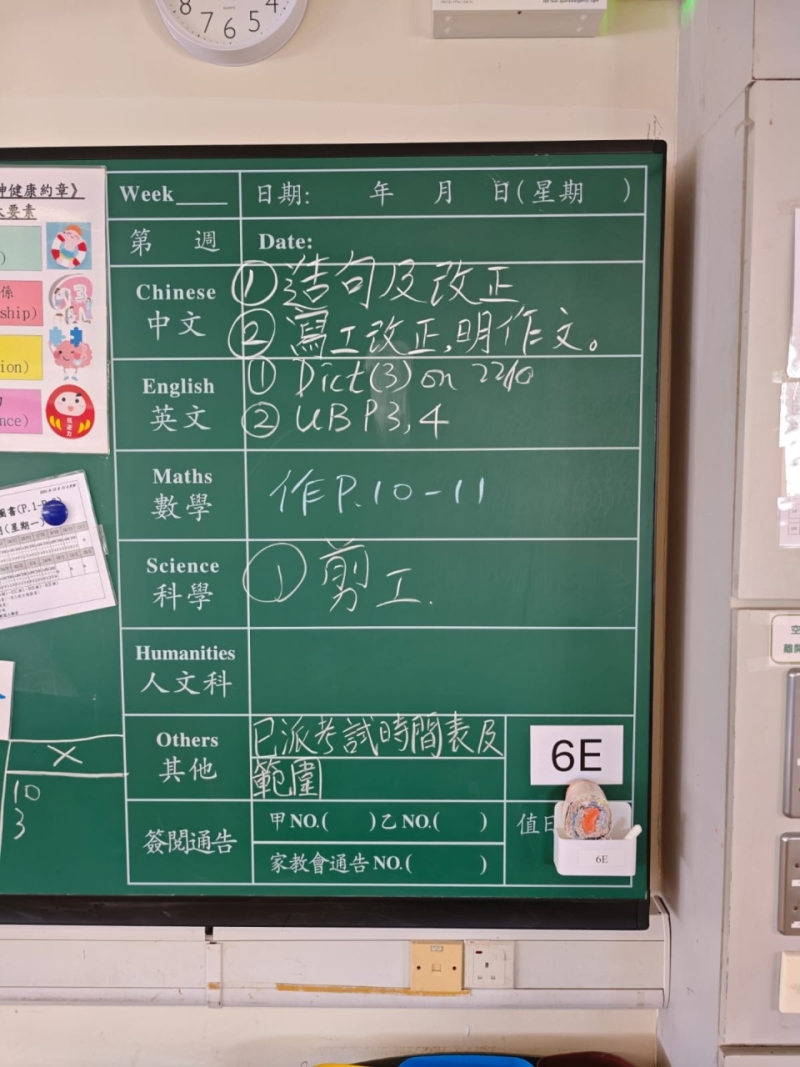 8 7 6 5 4
神健康約章》
要素
係
ship)
ion)
nce)
圖書(P.1-
(星期一)
Week____ 日期: 年 月 日(星期 )
第 週 Date:
Chinese 中文
① 造句及改正
② 寫工改正,明作文。
English 英文
① Dict(3) on 22/10
② UB P3,4
Maths 數學
作P.10-11
Science 科學
① 剪工.
Humanities 人文科
Others 其他
已派考試時間表及
範圍
6E
簽閱通告
甲NO.( )乙NO.( )
家教會通告NO.( )
值日
6E
X
10
3
空
離開